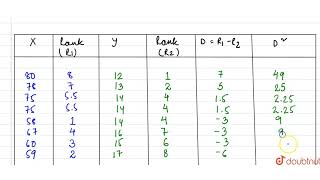 X Rank (R1) Y Rank (R2) D = R1 - R2 D²
80 8 12 1 7 49
78 7 13 2 5 25
75 5.5 14 4 1.5 2.25
75 5.5 14 4 1.5 2.25
58 1 14 4 -3 9
67 4 16 7 -3
60 3 15 6 -3
59 2 17 8 -6
doubtnut